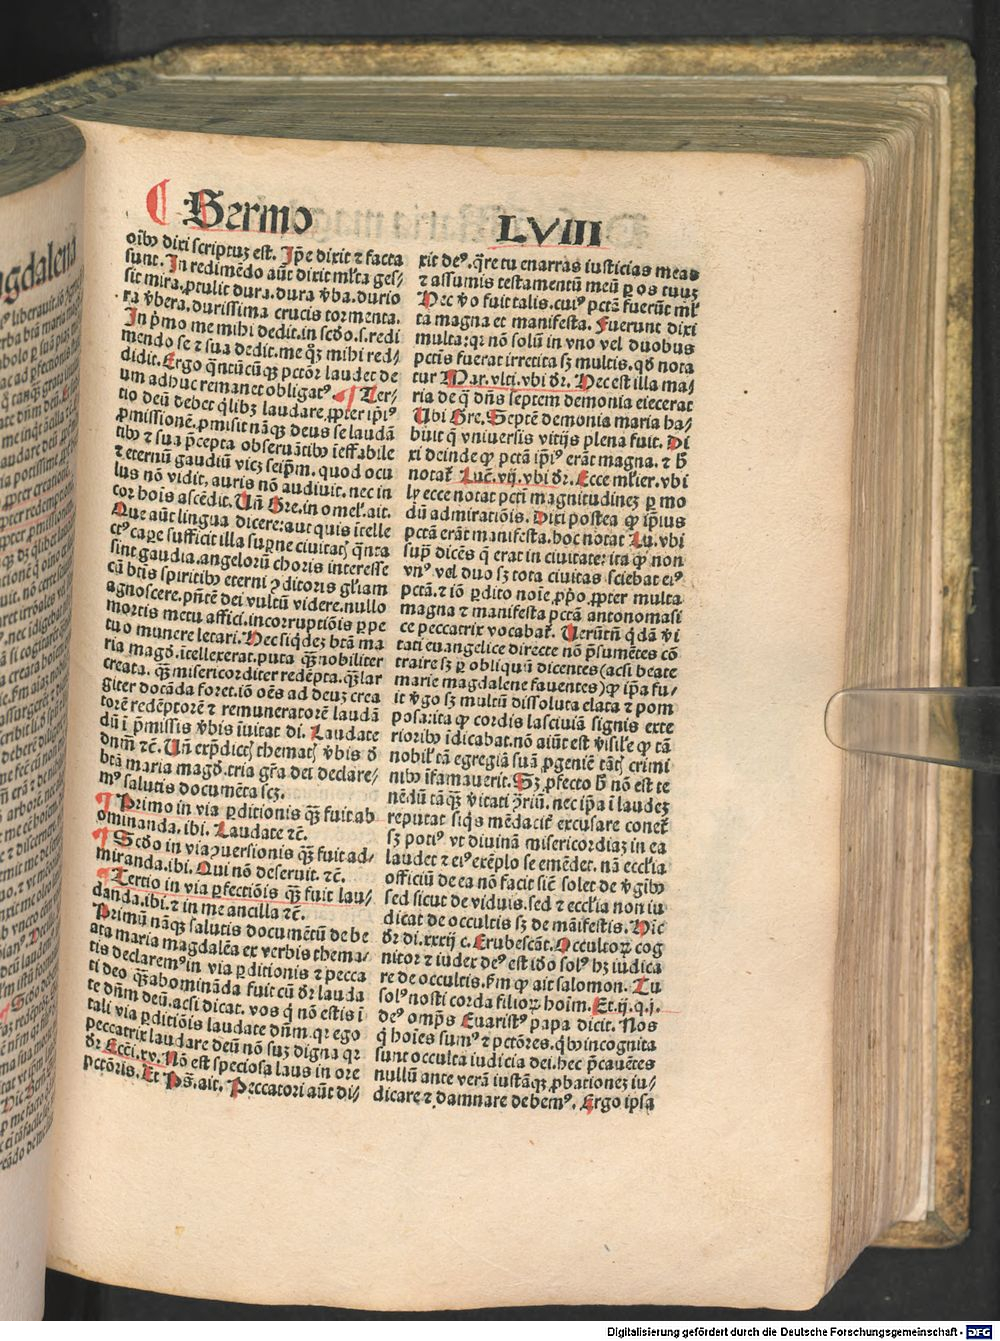 Sermo LVIII
oĩbꝰ dixi scriptuꝫ est. Ip̃e dixit ⁊ facta
sunt. In redimẽdo aũt dixit ml̃ta ges/
sit mira, ꝓtulit dura. dura v̾ba. durio
ra v̾bera. durissima crucis tormenta.
In p̾mo me mihi dedit. in scđo .s. redi
mendo se ⁊ sua dedit. me qꝫ̃ mihi red/
didit. Ergo q̃ntũcũqꝫ pctõr laudet de
um adhuc remanet obligatꝰ. ¶ Ter/
tio deũ debet q̾libꝫ laudare, ꝓpter ip̾iꝰ
ꝓmissionẽ. ꝓmisit nãqꝫ deus se laudã
tibꝰ ⁊ sua p̾cepta obseruãtibꝰ ĩeffabile
⁊ eternũ gaudiũ vicꝫ seip̃m. quod ocu
lus nõ vidit, auris nõ audiuit. nec in
cor hoĩs ascẽdit. Uñ Gre. in omel̾. ait.
Que aũt lingua dicere: aut quis ĩtelle
ctꝰ caꝑe sufficit illa suꝑne ciuitatꝭ q̃nta
sint gaudia. angeloꝝ choris interesse
cũ btĩs spiritibꝰ eterni ꝯditoris gl̃iam
agnoscere. pñtẽ dei vultũ videre. nullo
mortis metu affici. incorruptiõis ꝑpe
tuo munere letari. Hec siqdeꝫ btã ma
ria magđ. ĩtellexerat. puta qꝫ̃ nobiliter
creata. qꝫ̃ misericorditer redẽpta. qꝫ̃ lar
giter docãda foret. iõ oẽs ad deuꝫ crea
torẽ redẽptorẽ ⁊ remuneratorẽ laudã
dũ ĩ p̾missis v̾bis ĩuitat di. Laudate
dñm ⁊c̃. Uñ exp̃dictꝭ thematꝭ v̾bis đ
btã maria magđ. tria gr̃a dei declare/
mꝰ salutis documẽta scꝫ.
¶ Primo in via ꝑditionis qꝫ̃ fuit ab
ominanda. ibi. Laudate ⁊c̃.
¶ Scđo in via ꝯuersionis qꝫ̃ fuit ad/
miranda. ibi. Qui nõ deseruit. ⁊c̃.
¶ Tertio in via ꝑfectiõis qꝫ̃ fuit lau/
danda. ibi. ⁊ in me ancilla ⁊c̃.
Primũ nãqꝫ salutis documẽtũ de be
ata maria magdalẽa ex verbis thema/
tis declaremꝰ in via ꝑditionis ⁊ pecca
ti deo qꝫ̃ abominãda fuit cũ đr lauda
te dñm deũ. acsi dicat. vos q̾ nõ estis ĩ
tali via ꝑditiõis laudate dñm. qr ego
peccatrix laudare deũ nõ suꝫ digna qr
đr Eccĩ. xv. Nõ est speciosa laus in ore
pctõris. Et Ps̃. ait. Peccatori aũt di/
xit deꝰ. q̃re tu enarras iusticias meas
⁊ assumis testamentũ meũ ꝑ os tuuꝫ
Hec v̾o fuit talis. cuiꝰ pctã fuerũt ml̾
ta magna et manifesta. Fuerunt dixi
multa: qr nõ solũ in vno vel duobus
pctĩs fuerat irretita sꝫ multis. qđ nota
tur Mar. vlti. vbi đr. Hec est illa ma/
ria de q̃ dñs septem demonia eiecerat
Ubi Gre. Septẽ demonia maria ha/
buit q̃ vniuersis vitijs plena fuit. Di
xi deinde ꝙ pctã ip̾iꝰ erãt magna. ⁊ h̾
notat̾ Luc̃. vij. vbi đr. Ecce ml̾ier. vbi
ly ecce notat pctĩ magnitudineꝫ ꝑ mo
dũ admiratiõis. Dixi postea ꝙ ip̃ius
pctã erãt manifesta. hoc notat Lu. vbi
sup̾ dicẽs q̃ erat in ciuitate: ita ꝙ non
vnꝰ vel duo sꝫ tota ciuitas sciebat eiꝰ
pctã. ⁊ iõ ꝑdito noĩe ꝓp̾o, ꝓpter multa
magna ⁊ manifesta pctã antonomasi
ce peccatrix vocabat̾. Uerũtñ q̾dã v̾i
tati euangelice directe nõ p̾sumẽtes cõ
traire sꝫ ꝑ obliquũ dicentes (acsi beate
marie magdalene fauentes) ꝙ ip̃a fu/
it v̾go sꝫ multũ dissoluta elata ⁊ pom
posa: ita ꝙ cordis lasciuiã signis exte
rioribꝰ ĩdicabat. nõ aiũt est v̾isil̾e ꝙ tã
nobil̾ tã egregiã suã ꝓgeniẽ tãtꝭ crimi
nibꝰ ĩfamauerit. Sꝫ ꝓfecto h̾ nõ est te
nẽdũ tãqꝫ̃ v̾itati ꝯ̾riũ. nec ip̃a ĩ laudeꝫ
reputat siqs mẽdacit̾ excusare conet̾
sꝫ potiꝰ vt diuinã misericordiaꝫ in ea
laudet ⁊ eiꝰ exẽplo se emẽdet. nã eccl̾ia
officiũ de ea nõ facit sic̃ solet de v̾gibꝰ
sed sicut de viduis. sed ⁊ eccl̾ia non iu
dicat de occultis sꝫ de mãifestis. Hic
đr di. xxxij c. Erubescãt. Occultoꝝ cog
nitor ⁊ iudex deꝰ est iđo solꝰ hꝫ iudica
re de occultis. fm ꝙ ait salomon. Tu
solꝰ nosti corda filioꝝ hoim. Et. ij. q. j.
deꝰ omp̃s Euaristꝰ papa dicit. Nos
q̾ hoĩes sumꝰ ⁊ pctõres. qbꝰ incognita
sunt occulta iudicia dei. hec p̾cauẽtes
nullũ ante verã iustãqꝫ ꝓbationeꝫ iu/
dicare ⁊ damnare debemꝰ. Ergo ipsa
Digitalisierung gefördert durch die Deutsche Forschungsgemeinschaft - DFG